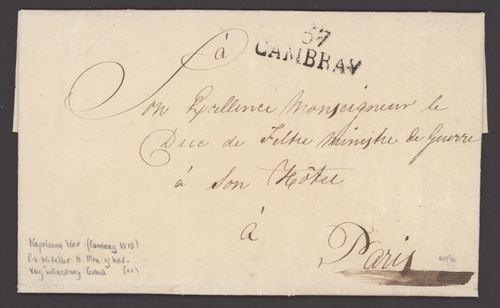 à
57
CAMBRAY
Son Excellence Monseigneur le
Duc de Feltre Ministre de Guerre
à Son Hôtel
à
Paris
Napoleonic War. (Cambray 1813)
P.O.W. letter to Min. of War.
Very interesting